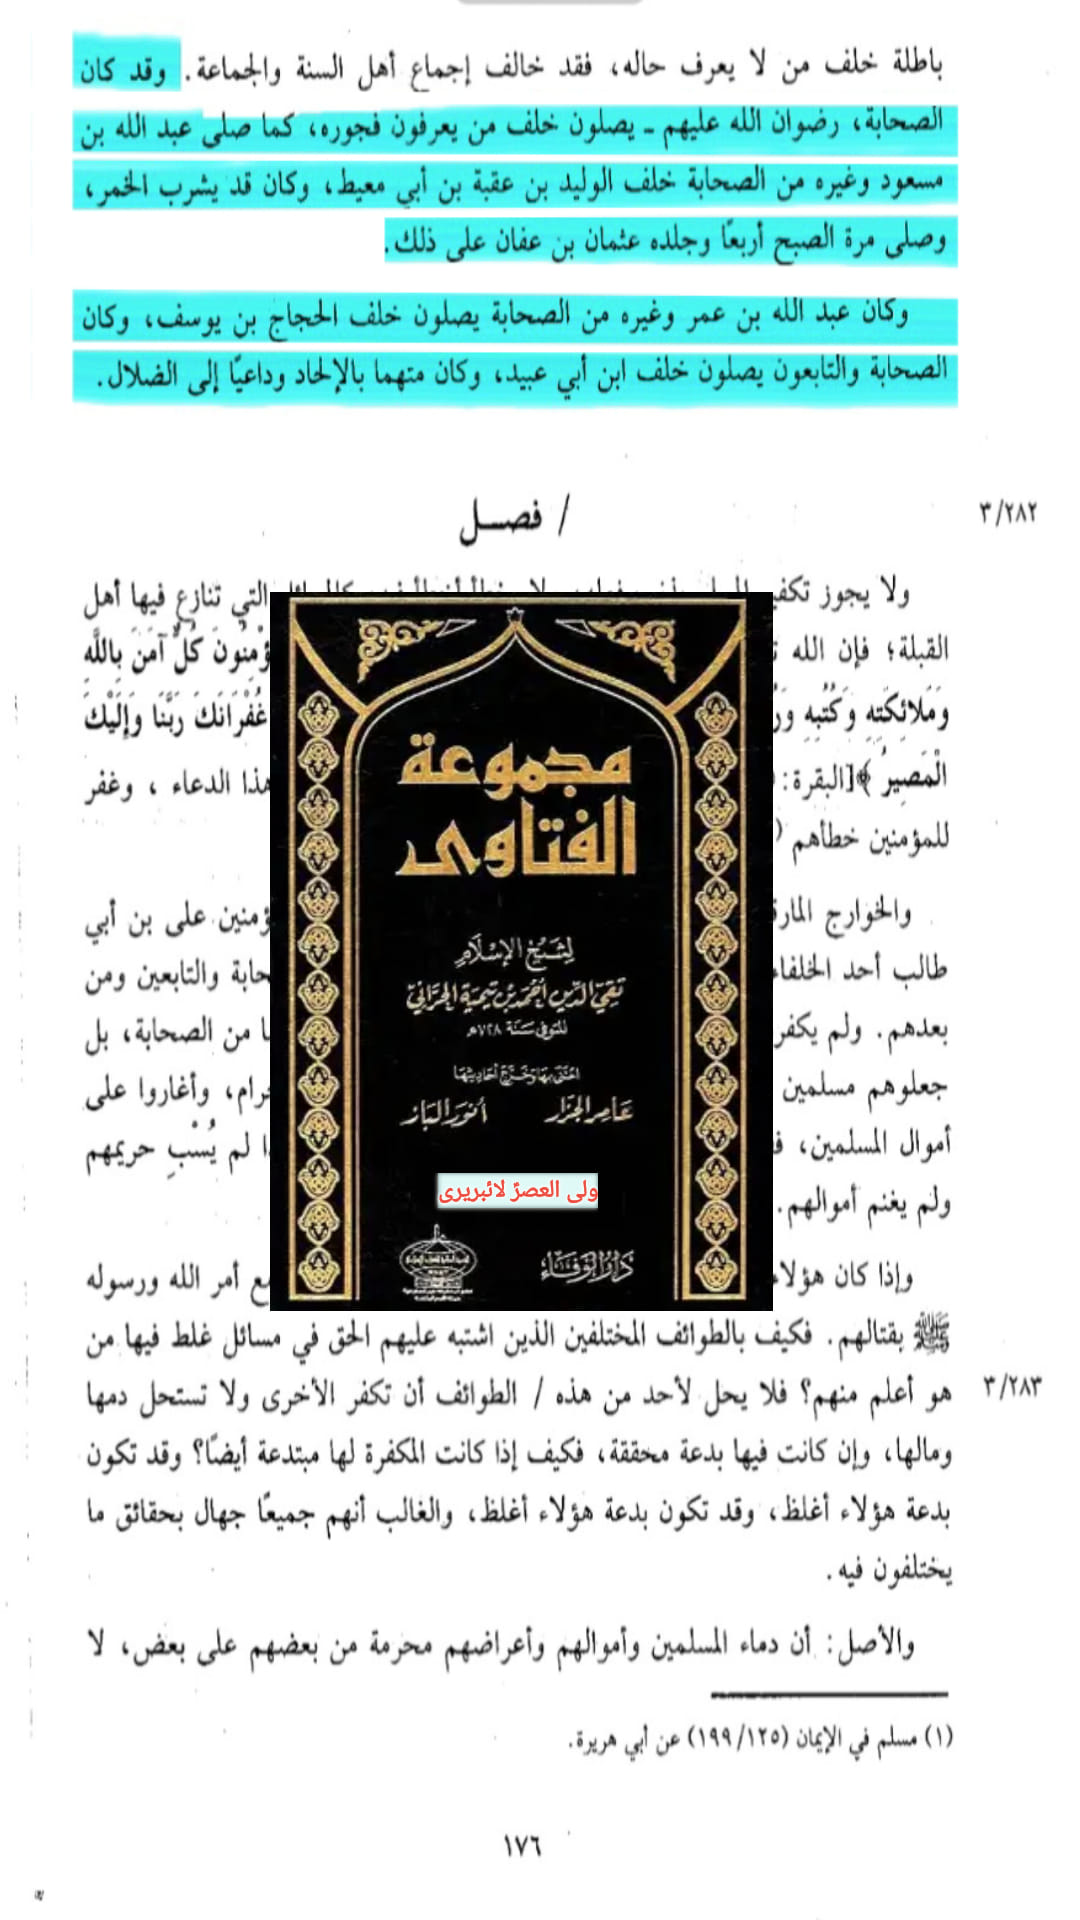 باطلة خلف من لا يعرف حاله، فقد خالف إجماع أهل السنة والجماعة. وقد كان
الصحابة، رضوان الله عليهم ـ يصلون خلف من يعرفون فجوره، كما صلى عبد الله بن
مسعود وغيره من الصحابة خلف الوليد بن عقبة بن أبي معيط، وكان قد يشرب الخمر،
وصلى مرة الصبح أربعًا وجلده عثمان بن عفان على ذلك.
وكان عبد الله بن عمر وغيره من الصحابة يصلون خلف الحجاج بن يوسف، وكان
الصحابة والتابعون يصلون خلف ابن أبي عبيد، وكان متهما بالإلحاد وداعيًا إلى الضلال.
/ فصــل
٣/٢٨٢
ولا يجوز تكفير التي تنازع فيها أهل
القبلة؛ فإن الله كُلٌّ آمَنَ بِاللَّهِ
وَمَلائِكَتِهِ وَكُتُبِهِ غُفْرَانَكَ رَبَّنَا وَإِلَيْكَ
الْمَصِيرُ ﴾[البقرة: هذا الدعاء ، وغفر
للمؤمنين خطأهم
والخوارج على بن أبي
طالب أحد والتابعين ومن
بعدهم. ولم من الصحابة، بل
جعلوهم مسلمين وأغاروا على
أموال المسلمين، لم يُسْبِ حريمهم
ولم يغنم أموالهم.
وإذا كان أمر الله ورسوله
ﷺ بقتالهم. فكيف بالطوائف المختلفين الذين اشتبه عليهم الحق في مسائل غلط فيها من
هو أعلم منهم؟ فلا يحل لأحد من هذه / الطوائف أن تكفر الأخرى ولا تستحل دمها
٣/٢٨٣
ومالها، وإن كانت فيها بدعة محققة، فكيف إذا كانت المكفرة لها مبتدعة أيضًا؟ وقد تكون
بدعة هؤلاء أغلظ، وقد تكون بدعة هؤلاء أغلظ، والغالب أنهم جميعًا جهال بحقائق ما
يختلفون فيه.
والأصل: أن دماء المسلمين وأموالهم وأعراضهم محرمة من بعضهم على بعض، لا
(١) مسلم في الإيمان (١٩٩/١٢٥) عن أبي هريرة.
١٧٦
مجموعة
الفتاوى
لِشَيْخِ الإِسْلَامِ
تَقِيّ الدِّين أَحْمَد بْن تَيْمِيَة الحَرَّانِيّ
المتوفى سَنَة ٧٢٨هـ
اعْتَنَى بِهَا وَخَرَّجَ أَحَادِيثَهَا
عَامِر الجَزَّار أَنْوَر البَاز
ولی العصرؑ لائبریری
دَارُ الوَفَاء